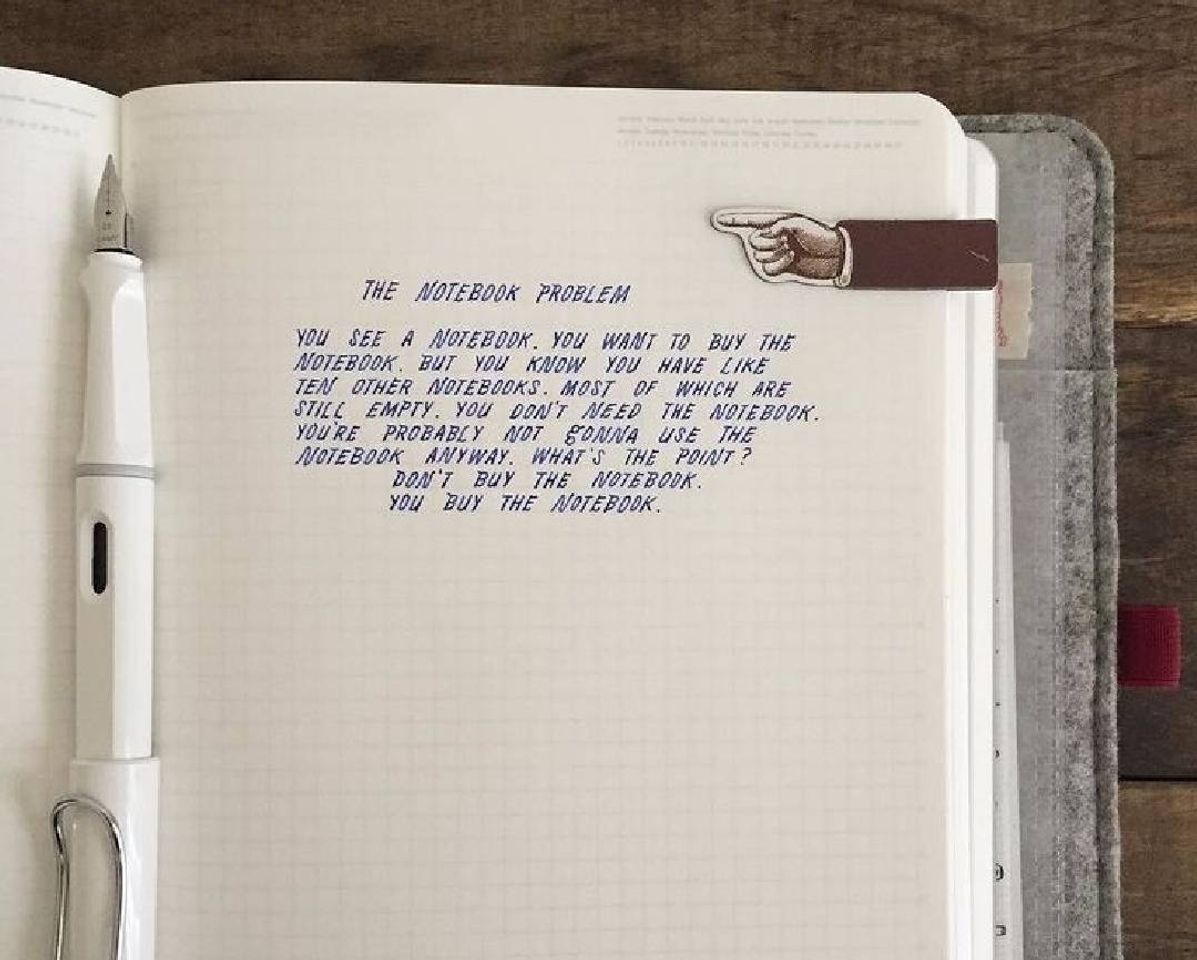 THE NOTEBOOK PROBLEM
YOU SEE A NOTEBOOK. YOU WANT TO BUY THE
NOTEBOOK. BUT YOU KNOW YOU HAVE LIKE
TEN OTHER NOTEBOOKS. MOST OF WHICH ARE
STILL EMPTY. YOU DON'T NEED THE NOTEBOOK.
YOU'RE PROBABLY NOT GONNA USE THE
NOTEBOOK ANYWAY. WHAT'S THE POINT?
DON'T BUY THE NOTEBOOK.
YOU BUY THE NOTEBOOK.